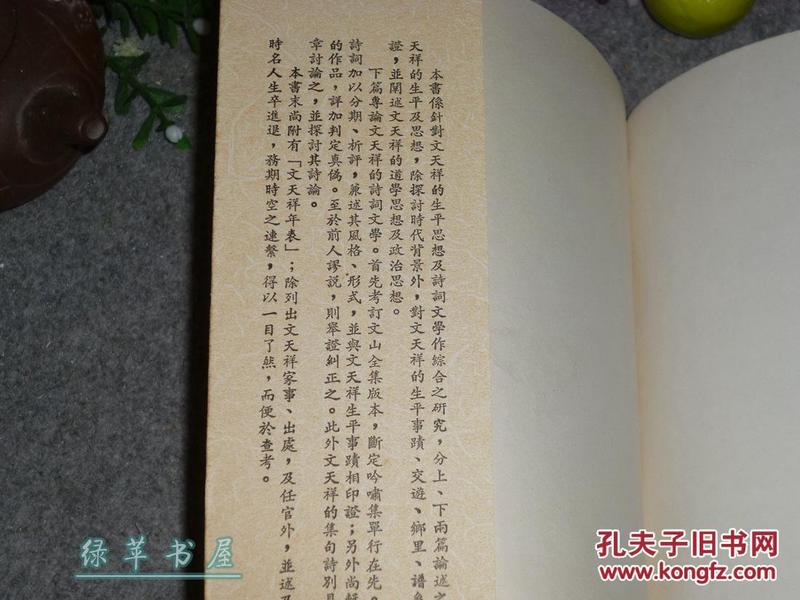 本書係針對文天祥的生平思想及詩詞文學作綜合之研究，分上、下兩篇論述之
天祥的生平及思想，除探討時代背景外，對文天祥的生平事蹟、交遊、鄉里、譜系
證，並闡述文天祥的道學思想及政治思想。
下篇專論文天祥的詩詞文學。首先考訂文山全集版本，斷定吟嘯集單行在先。
詩詞加以分期、析評，兼述其風格、形式，並與文天祥生平事蹟相印證；另外尚輯
的作品，詳加判定真偽。至於前人謬說，則舉證糾正之。此外文天祥的集句詩別具
章討論之，並探討其詩論。
本書末尚附有「文天祥年表」；除列出文天祥家事、出處，及任官外，並述及
時名人生卒進退，務期時空之連繫，得以一目了然，而便於查考。
绿苹书屋
孔夫子旧书网
www.kongfz.com